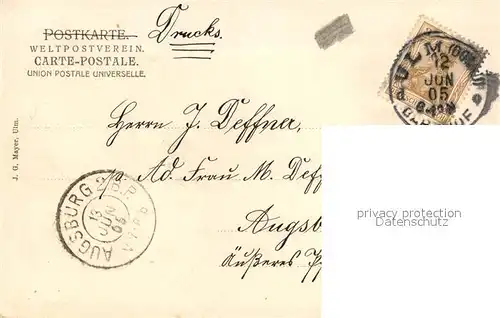 POSTKARTE.
Drucks.
WELTPOSTVEREIN.
CARTE-POSTALE.
UNION POSTALE UNIVERSELLE.
ULM (DONAU)
12
JUN
05
BAHNHOF
Herrn J. Deffner,
p. Ad. Frau M. Deff
Augsb
Äußeres Pf
J. G. Mayer, Ulm.
AUGSBURG 2
13
JUN
05
privacy protection
Datenschutz